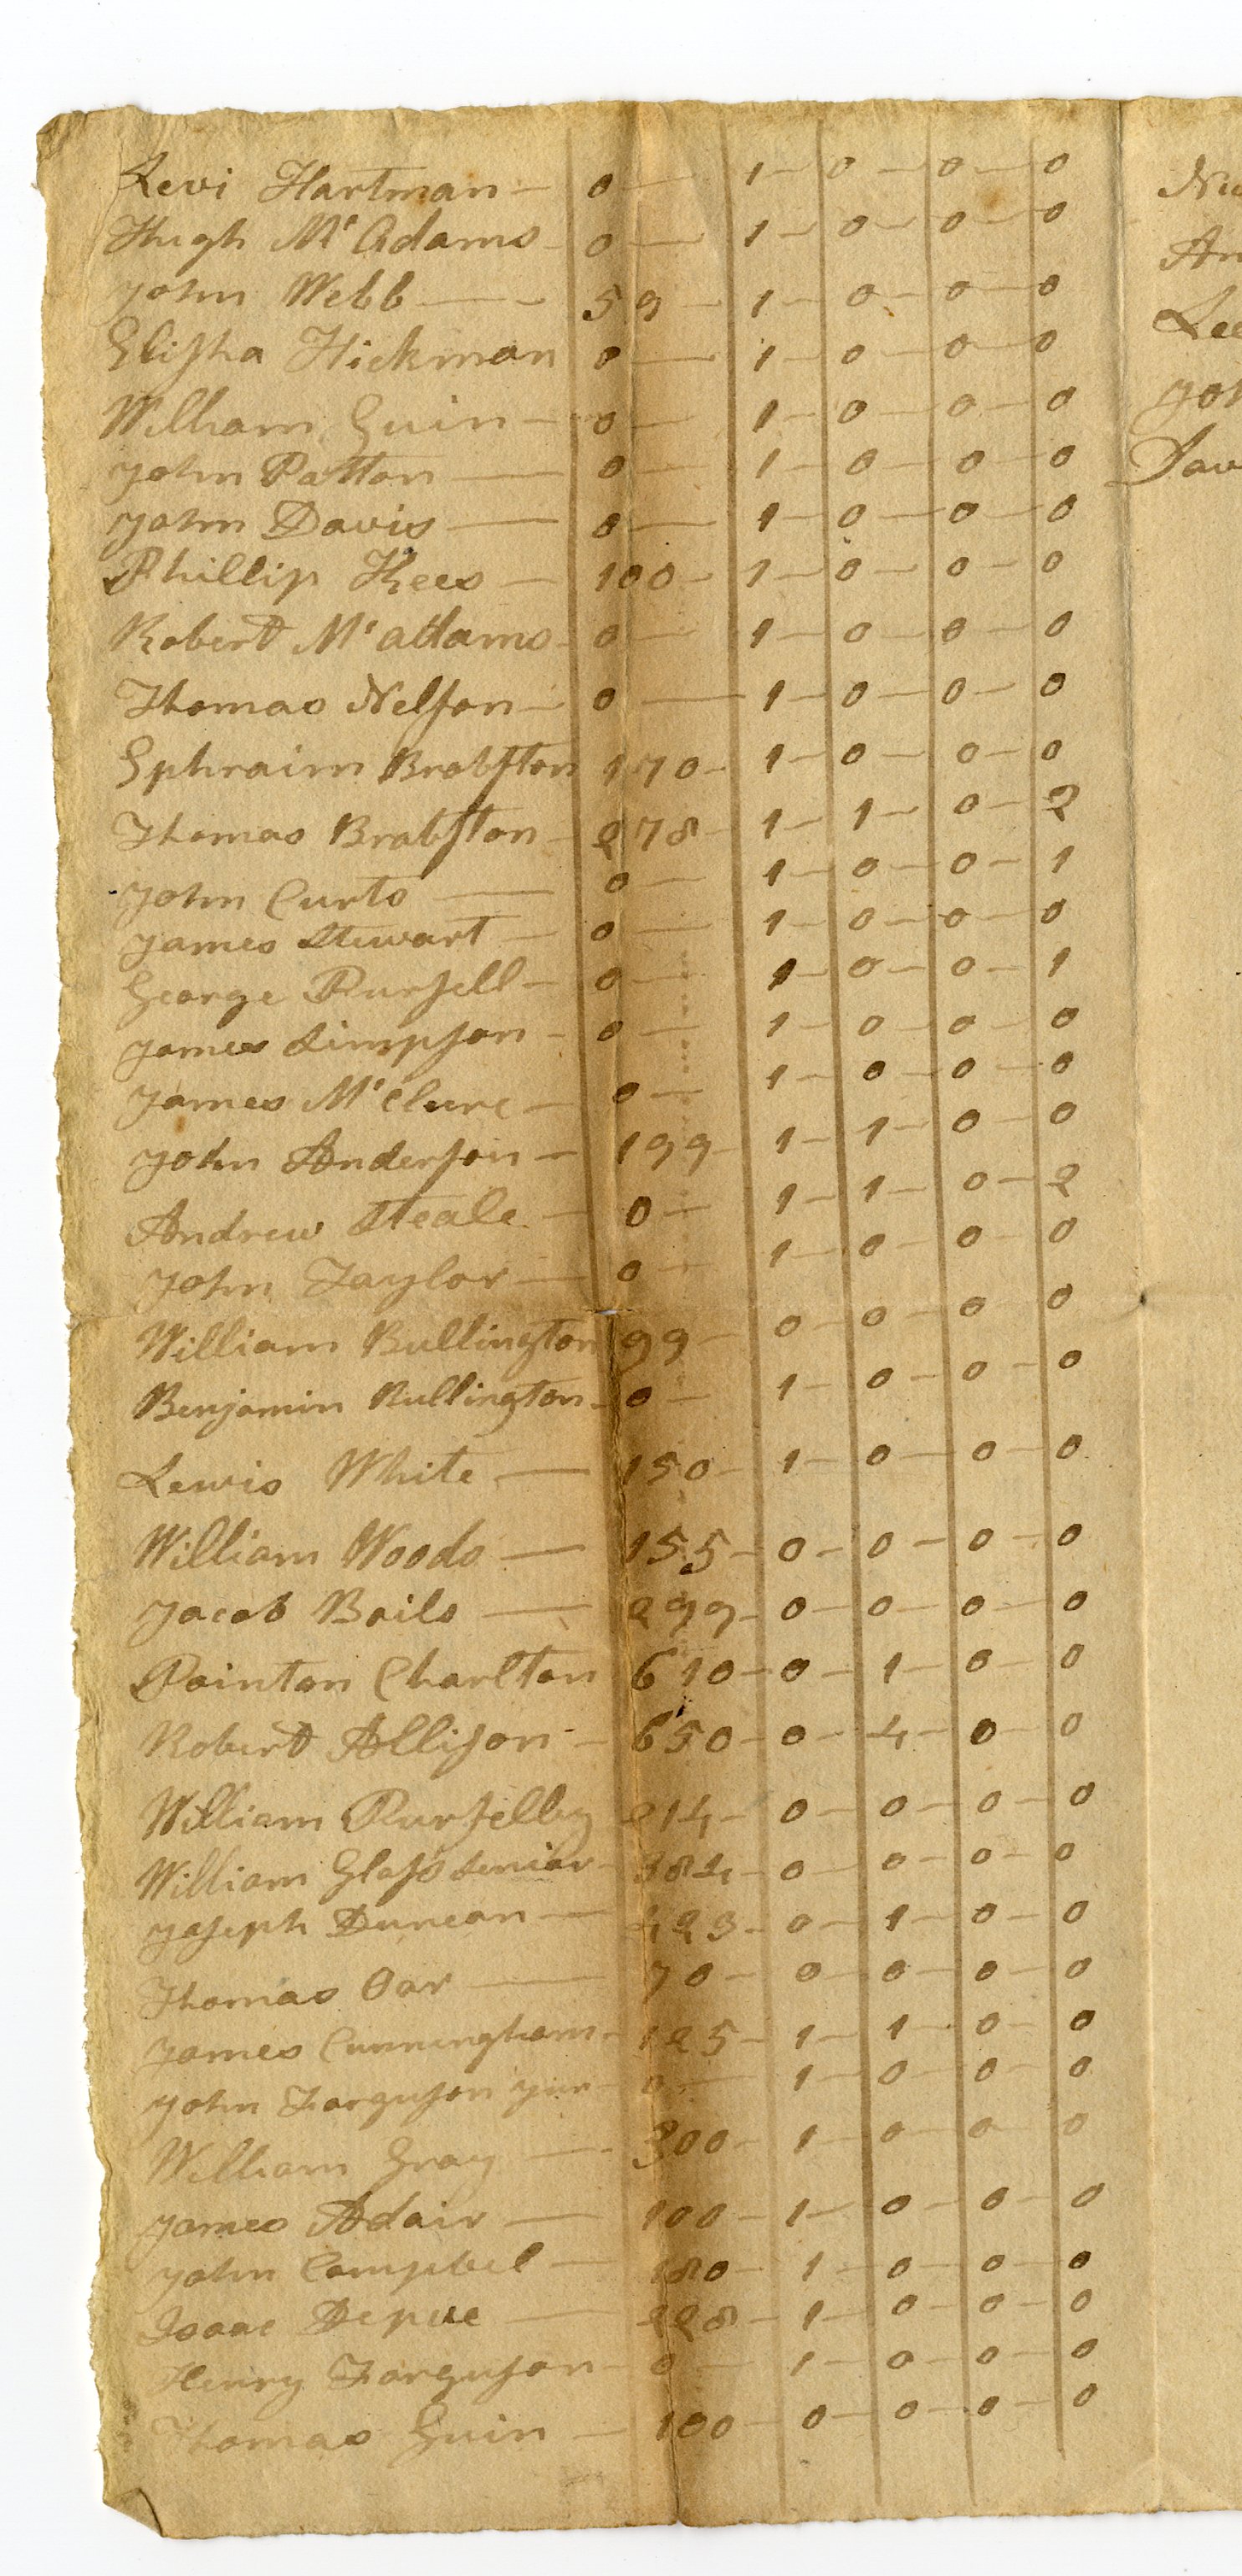 Levi Hartman — 0 — 1 — 0 — 0 — 0
Hugh Mc Adams — 0 — 1 — 0 — 0 — 0
John Webb — 59 — 1 — 0 — 0 — 0
Eliſha Hickman 0 — 1 — 0 — 0 — 0
William Guin — 0 — 1 — 0 — 0 — 0
John Patton — 0 — 1 — 0 — 0 — 0
John Davis — 0 — 1 — 0 — 0 — 0
Phillip Kees — 100 — 1 — 0 — 0 — 0
Robert Mc adams — 0 — 1 — 0 — 0 — 0
Thomas Nelſon — 0 — 1 — 0 — 0 — 0
Ephraim Brabſton 170 — 1 — 0 — 0 — 0
Thomas Brabſton — 278 — 1 — 1 — 0 — 2
John Curts — 0 — 1 — 0 — 0 — 1
James Stewart — 0 — 1 — 0 — 0 — 0
George Purſell — 0 — 1 — 0 — 0 — 1
James Simpſon — 0 — 1 — 0 — 0 — 0
James Mc Clure — 0 — 1 — 0 — 0 — 0
John Anderſon — 199 — 1 — 1 — 0 — 0
Andrew Steale — 0 — 1 — 1 — 0 — 2
John Taylor — 0 — 1 — 0 — 0 — 0
William Bullington 99 — 0 — 0 — 0 — 0
Benjamin Bullington — 0 — 1 — 0 — 0 — 0
Lewis White — 150 — 1 — 0 — 0 — 0
William Woods — 155 — 0 — 0 — 0 — 0
Jacob Boils — 299 — 0 — 0 — 0 — 0
Pointon Charlton 610 — 0 — 1 — 0 — 0
Robert Alliſon — 650 — 0 — 4 — 0 — 0
William 214 — 0 — 0 — 0 — 0
William Glaſs Senior — 384 — 0 — 0 — 0 — 0
Joſeph Duncan — 423 — 0 — 1 — 0 — 0
Thomas Oar — 70 — 0 — 0 — 0 — 0
James Cunningham — 125 — 1 — 1 — 0 — 0
John Farguſon Jun — 0 — 1 — 0 — 0 — 0
William Gray — 300 — 1 — 0 — 0 — 0
James Adair — 100 — 1 — 0 — 0 — 0
John Campbel — 180 — 1 — 0 — 0 — 0
Isaac Depue — 228 — 1 — 0 — 0 — 0
Henry Farguſon — 0 — 1 — 0 — 0 — 0
Thomas Guin — 100 — 0 — 0 — 0 — 0